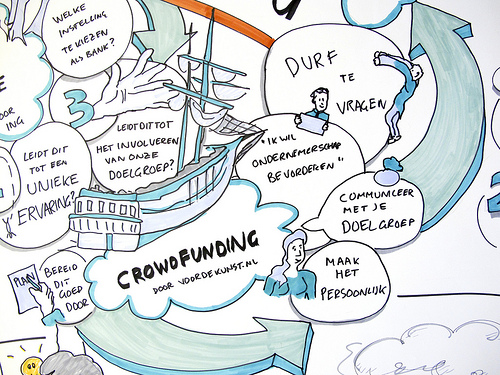 WELKE
INSTELLING
TE KIEZEN
ALS BANK?
DURF
TE
VRAGEN
3
OOR
ING
LEIDT DIT TOT
HET INVOLVEREN
VAN ONZE
DOELGROEP?
"IK WIL
ONDERNEMERSCHAP
BEVORDEREN"
LEIDT DIT
TOT EEN
UNIEKE
ERVARING?
COMMUNICEER
MET JE
DOELGROEP
CROWDFUNDING
DOOR VOORDEKUNST.NL
PLAN
BEREID
DIT
GOED
DOOR
MAAK
HET
PERSOONLIJK